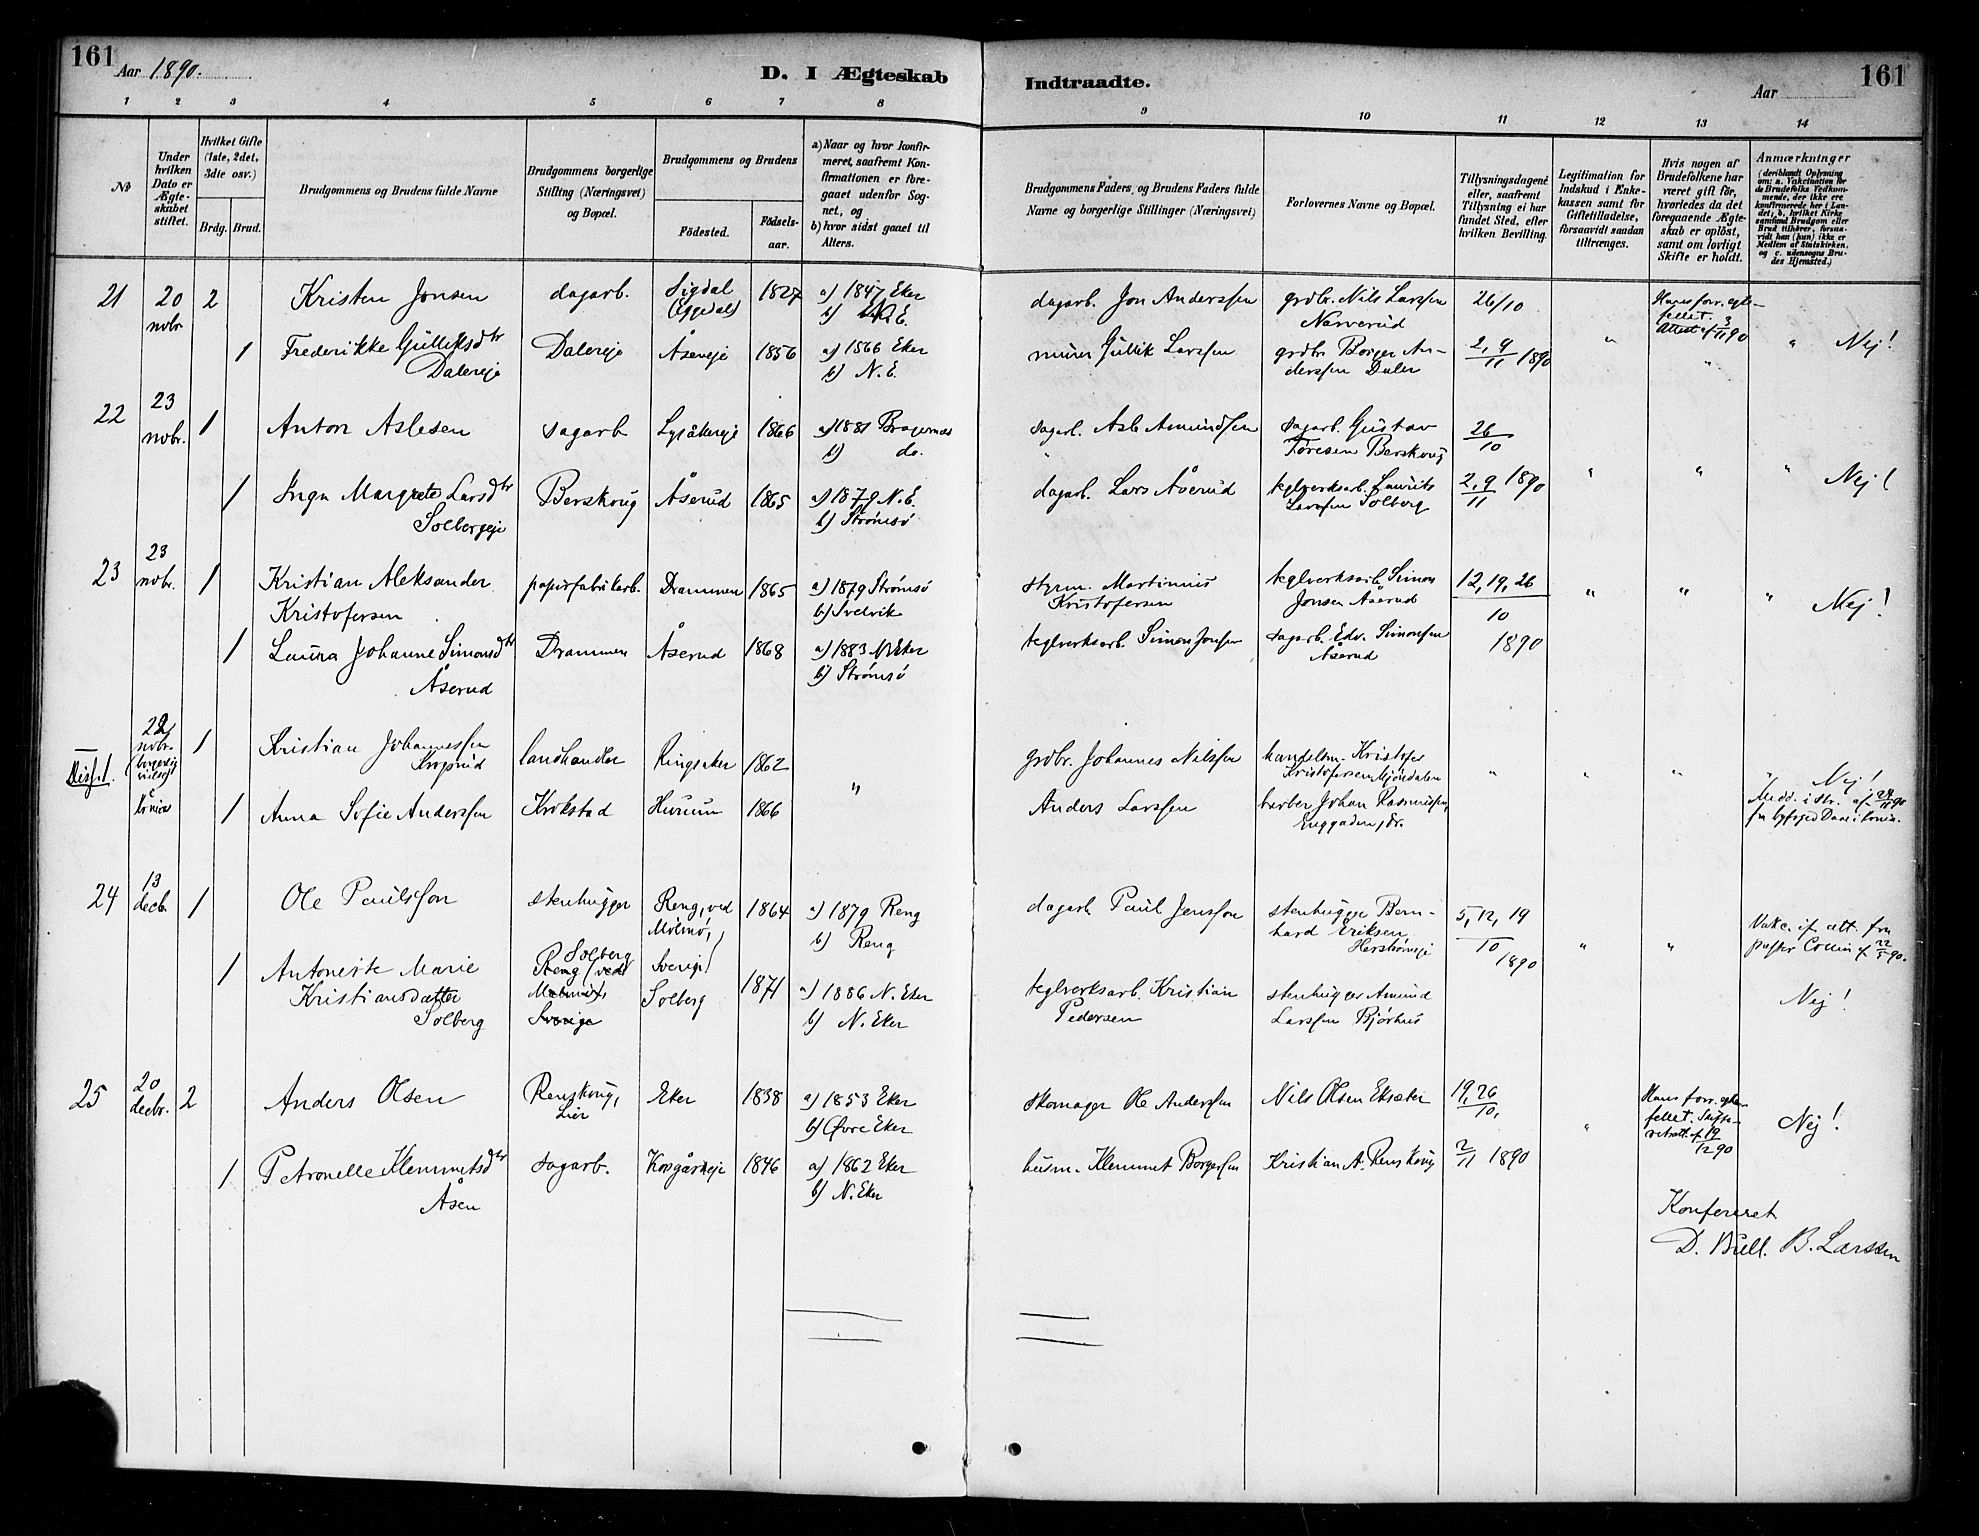 161
Aar 1890.
D. I Ægteskab
Indtraadte.
Aar
161
1 2 3 4 5 6 7 8 9 10 11 12 13 14
No
Under hvilken Dato er Ægteskabet stiftet.
Hvilket Gifte (1ste, 2det, 3die osv.)
Brdg. Brud.
Brudgommens og Brudens fulde Navne
Brudgommens borgerlige Stilling (Næringsvei) og Bopæl.
Brudgommens og Brudens
Födested.
Födselsaar.
a) Naar og hvor konfirmeret, saafremt Konfirmationen er foregaaet udenfor Sognet, og
b) hvor sidst gaaet til Alters.
Brudgommens Faders og Brudens Faders fulde Navne og borgerlige Stillinger (Næringsvei)
Forlovernes Navne og Bopæl.
Tillysningsdagene eller, saafremt Tillysning ei har fundet Sted, efter hvilken Bevilling.
Legitimation for Indskud i Enkekassen samt for Giftetilladelse, forsaavidt saadan tiltrænges.
Hvis nogen af Brudefolkene har været gift för, hvorledes da det foregaaende Ægteskab er oplöst, samt om lovligt Skifte er holdt.
Anmærkninger (deriblandt Oplysning om: a. Vakcination for de Brudefolks Vedkommende, der ikke ere konfirmerede her i Landet; b. hvilket Kirkesamfund Brudgom eller Brud tilhører, forsaavidt han (hun) ikke er Medlem af Statskirken, og c. udensogns Brudes Hjemsted.)
21 20 novbr. 2 Kristen Jonsen dagarb. Sigdal (Eggedal) 1827 a) 1847 Eker b) N.E. dagarb. Jon Anderssen grdbr. Nils Larssen Narverud 26/10 Hans forr. egtefellet. Attest af 3/11 90
1 Frederikke Gulliksdtr Dalereje Dalereje Åsereje 1856 a) 1866 Eker b) N.E. murer Gullik Larssen grdbr. Borger Anderssen Daler 2, 9/11 1890 " " " Nej!
22 23 novbr. 1 Anton Aslesen sagarb. Lysåkereje 1866 a) 1881 Bragernæs b) do. sagarb. Asle Amundsen sagarb. Gustav Toresen Berskoug 26/10
1 Inga Margrete Larsdtr Solbergeje Berskoug Åserud 1865 a) 1879 N.E. b) Strømsø dagarb. Lars Åserud teglverksarb. Laurits Larssen Solberg 2, 9/11 1890 " " " Nej!
23 23 novbr. 1 Kristian Aleksander Kristofersen papirfabrikarb. Drammen 1865 a) 1879 Strømsø b) Svelvik styrm. Martinius Kristofersen teglverksarb. Simon Jonsen Åserud 12, 19, 26/10 " " " Nej!
1 Laura Johanne Simonsdtr Åserud Drammen Åserud 1868 a) 1883 N. Eker b) Strømsø teglverksarb. Simon Jonsen sagarb. Edv. Simonsen Åserud 1890
22 novbr. 1 Kristian Johannessen landhandler Ringsaker 1862 grdbr. Johannes Nilssen handelsm. Kristofer Kristofersen Mjøndalen " " " " Nej!
1 Anna Sofie Anderssen Krokstad Hurum 1866 " Anders Larssen barber Johan Rasmussen, Enggaden, Dr.
24 13 decb. 1 Ole Paulsson stenhugger Reng, ved Malmø, Sverige 1864 a) 1879 Reng b) Reng dagarb. Paul Jensson stenhugger Bernhard Eriksen 5, 12, 19/10 1890 " " Vakc. if. att. fra pastor Collin af 22/5 90.
1 Antonette Marie Kristiansdatter Solberg Solberg Reng (ved Malmö) Sverige Solberg 1871 a) 1886 N. Eker b) N. Eker teglverksarb. Kristian Pedersen stenhugger Amund Larssen Bjørhus Nej!
25 20 decbr. 2 Anders Olsen Renskoug, Lier Eker 1838 a) 1853 Eker b) Øvre Eker skomager Ole Anderssen Nils Olsen Eksæter 19, 26/10, " Hans forr. egtefellet. Skifteretsatt. af 19/12 90 Nej!
1 Petronelle Klemmetsdtr Åsen sagarb. 1846 a) 1862 Eker b) N. Eker husm. Klemmet Borgersen Kristian A. Renskoug 2/11 1890
Konfereret
D. Bull. B. Larssen